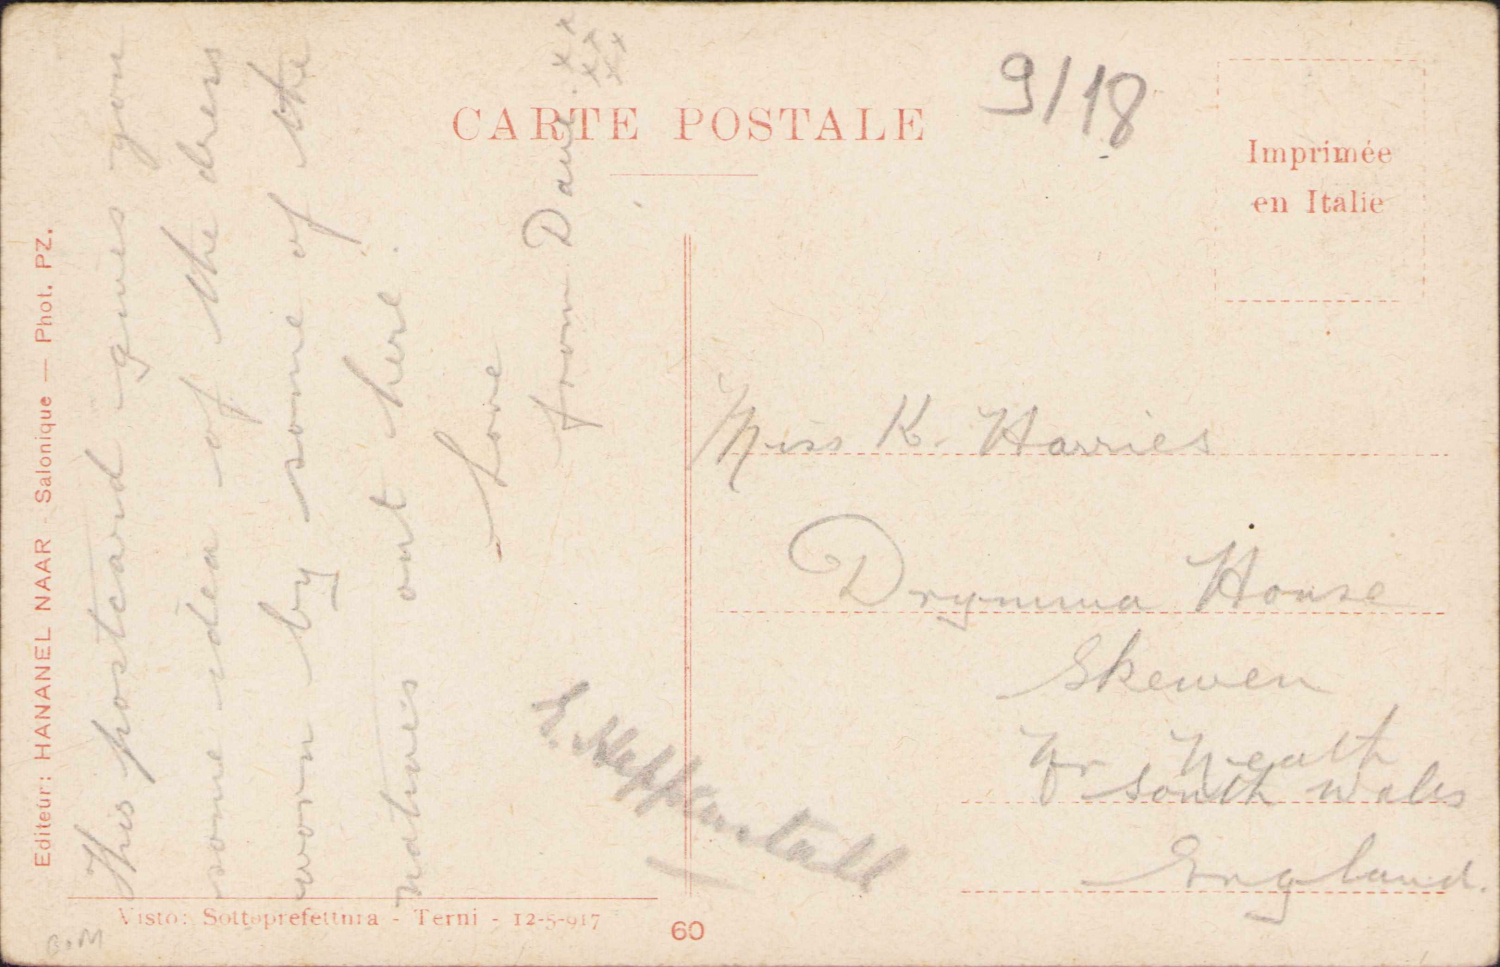 CARTE POSTALE
9/18
Imprimée
en Italie
This postcard gives you
some idea of the dress
worn by some of the
natives out here.
Love
from Dave. xx
xx
xx
Miss K. Harries
Drymma House
Skewen
Nr Neath
South Wales
England.
E. Heppenstall
Editeur: HANANEL NAAR - Salonique — Phot. PZ.
Visto: Sottoprefettura - Terni - 12-5-917
60